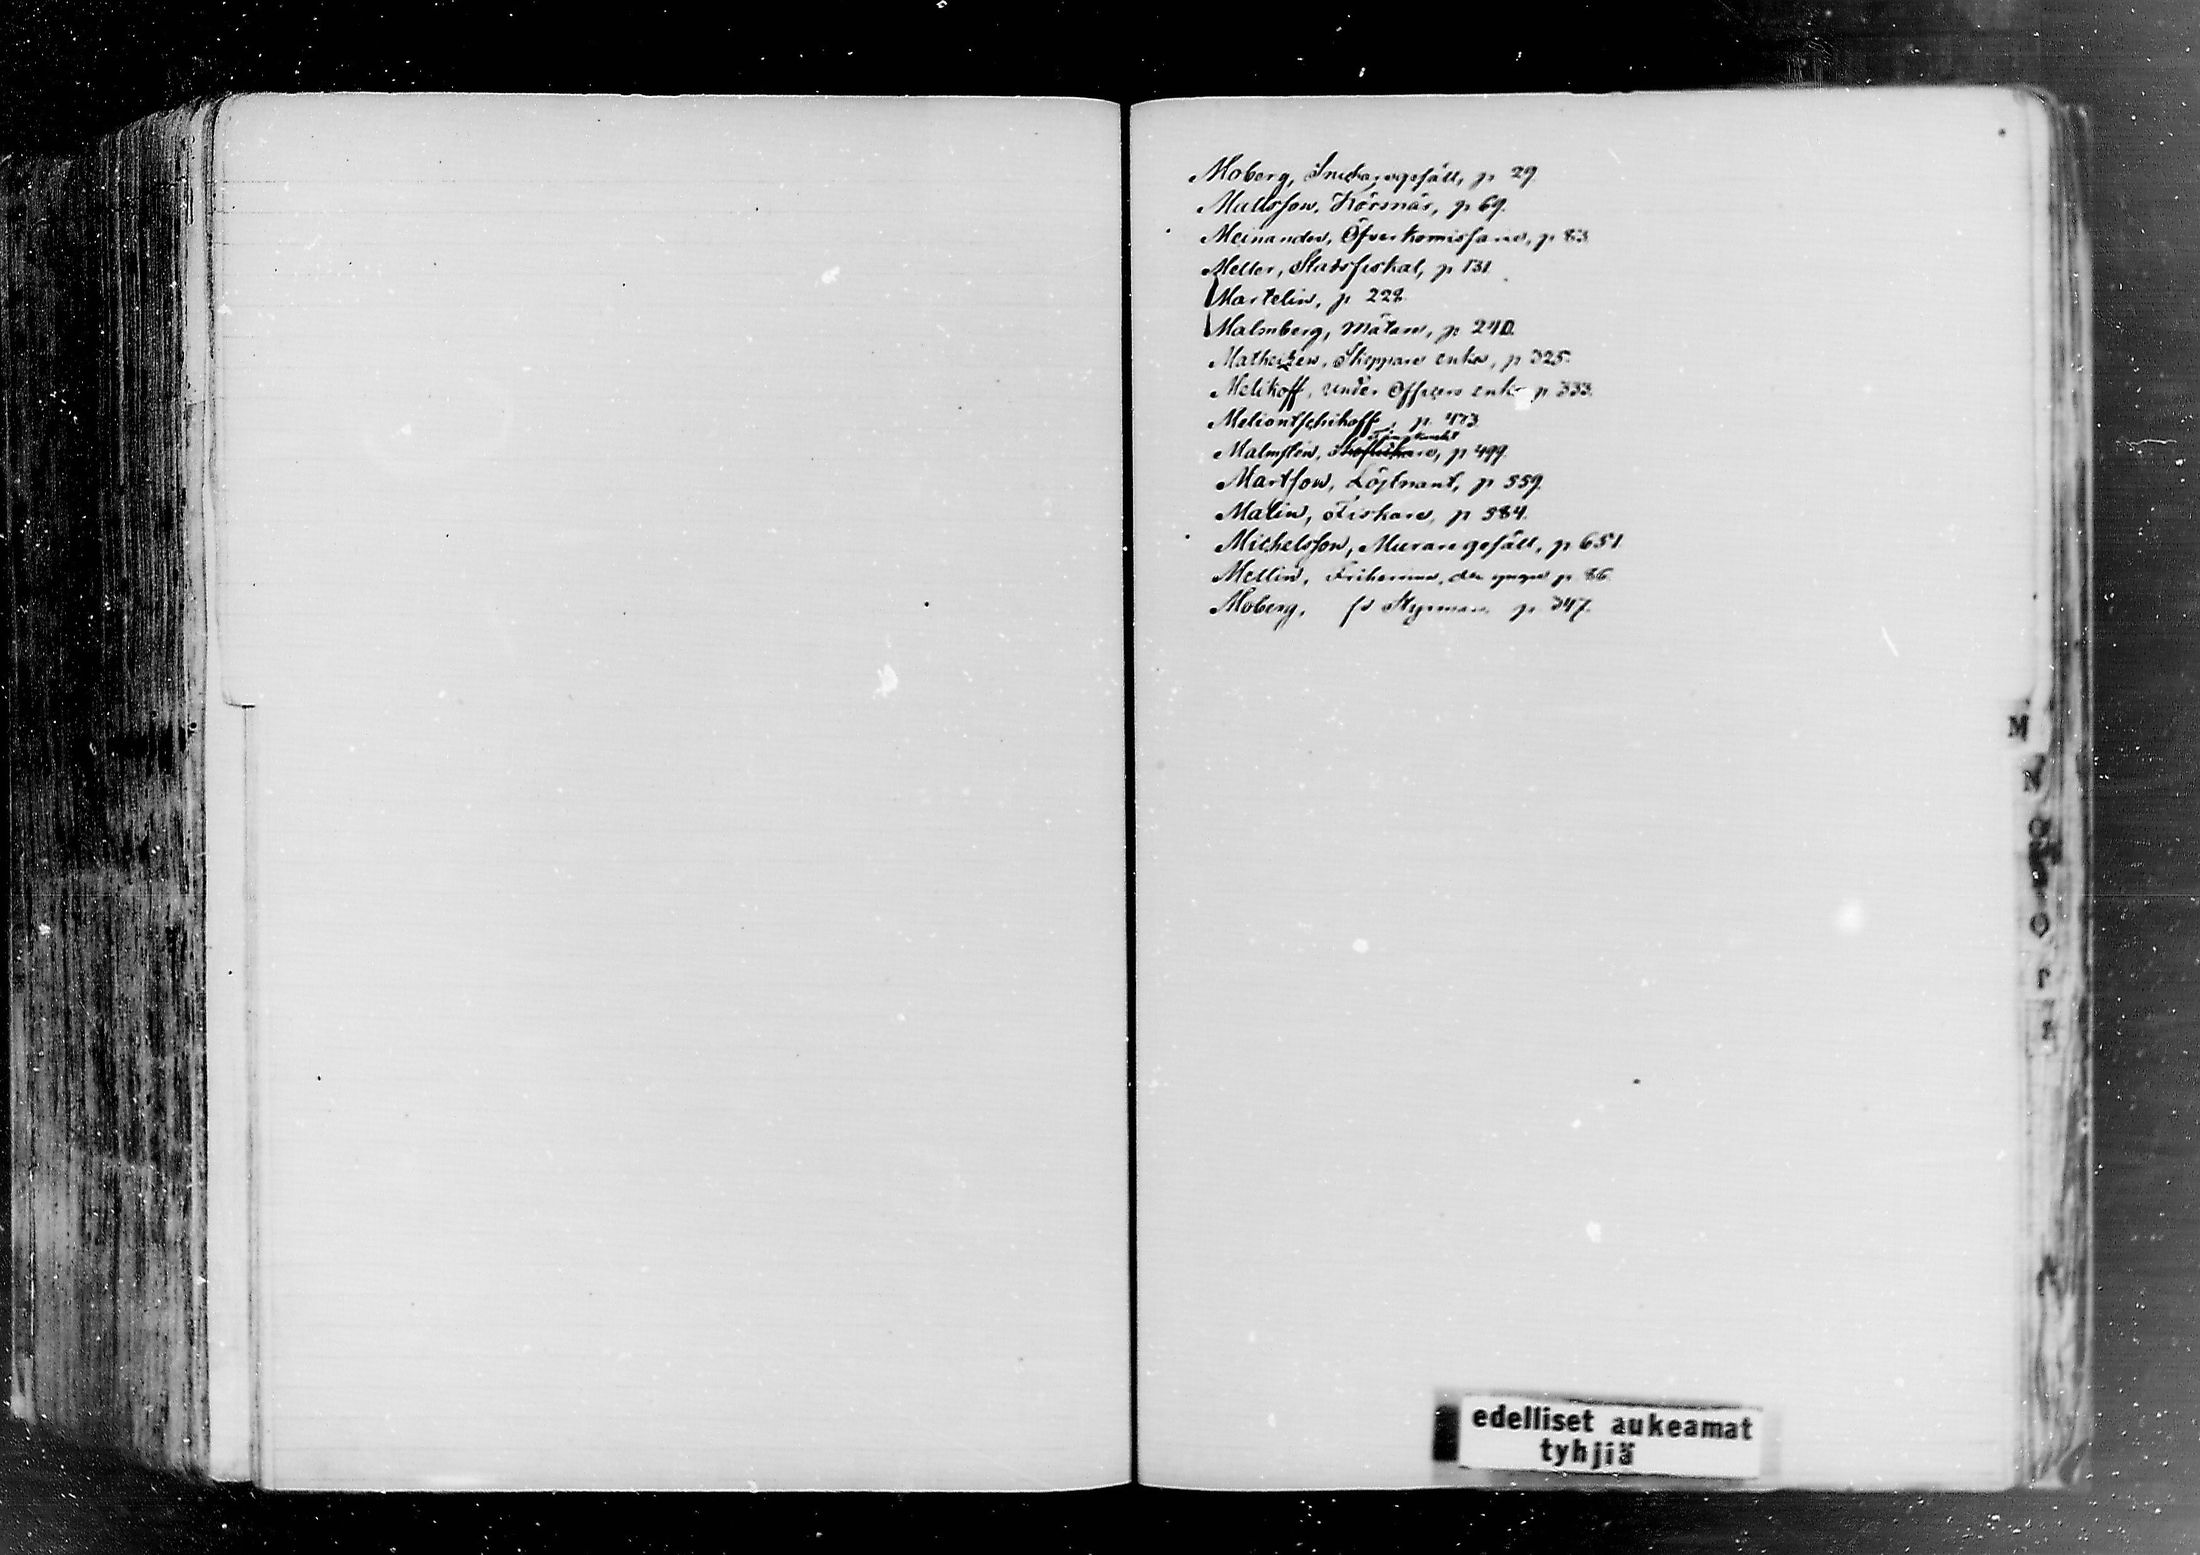 Moberg, Snickaregesäll, p 29.
Mattsson, Körsnär, p 69.
Meinander, Öfverkomissarie, p 83.
Meller, Stadsfiskal, p 131.
Martelin, p 228.
Malmberg, Mätare, p 240.
Matheizen, Skeppare enka, p 325.
Melikoff, under Officers enka p 333.
Meliontschikoff, p. 473.
Malmsten, p 499.
Martson, Löjtnant, p 559.
Malin, Fiskare, p 584.
Michelsson, Muraregesäll, p 651
Mellin, Friherrinna, den yngre p 86.
Moberg, fd Styrman p. 347.
M
N
O
P
edelliset aukeamat
tyhjiä